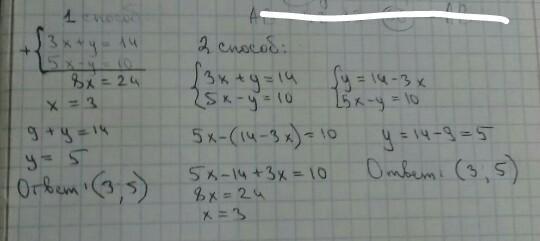 1 способ
+ { 3x + y = 14
5x - y = 10
8x = 24
x = 3
9 + y = 14
y = 5
Ответ: (3; 5)
2 способ:
{ 3x + y = 14
5x - y = 10
{ y = 14 - 3x
5x - y = 10
5x - (14 - 3x) = 10
5x - 14 + 3x = 10
8x = 24
x = 3
y = 14 - 9 = 5
Ответ: (3; 5)